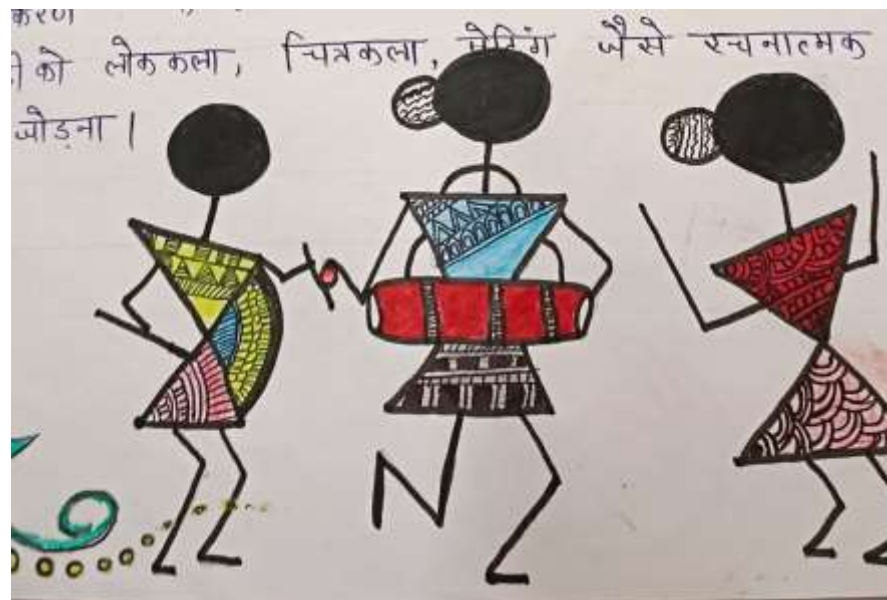 करण
को लोककला, चित्रकला, पेटिंग जैसे रचनात्मक
जोड़ना।